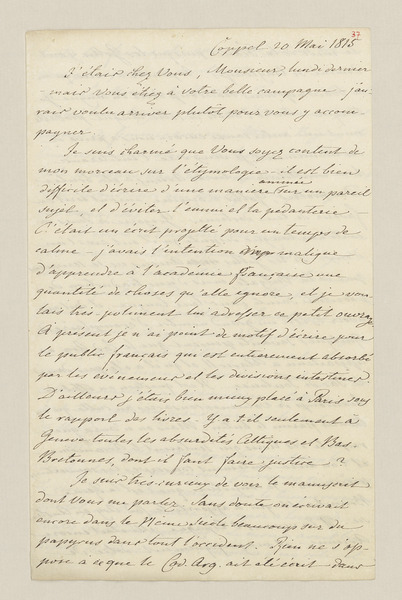 37
Coppet 20 Mai 1815
J'étais chez Vous, Monsieur, lundi dernier
- mais vous étiez à votre belle campagne - j'au-
rais voulu arriver plutôt pour vous y accom-
pagner.
Je suis charmé que Vous soyez content de
mon morceau sur l'étymologie - il est bien
difficile d'écrire d'une manière animée sur un pareil
sujet, et d'éviter l'ennui et la pédanterie. -
C'était un écrit projetté pour un temps de
calme - j'avais l'intention maligne
d'apprendre à l'académie française une
quantité de choses qu'elle ignore, et je vou-
lais très poliment lui adresser ce petit ouvrage.
A présent je n'ai point de motif d'écrire pour
le public français qui est entièrement absorbé
par les événemens et les divisions intestines.
D'ailleurs j'étais bien mieux placé à Paris sous
le rapport des livres. Y a t'il seulement à
Genève toutes les absurdités Celtiques et Bas-
Bretonnes, dont il faut faire justice ?
Je suis très curieux de voir le manuscrit
dont vous me parlez. Sans doute on écrivait
encore dans le siècle beaucoup sur du
papyrus dans tout l'occident. Rien ne s'op-
pose à ce que le Cod. Arg. ait été écrit dans